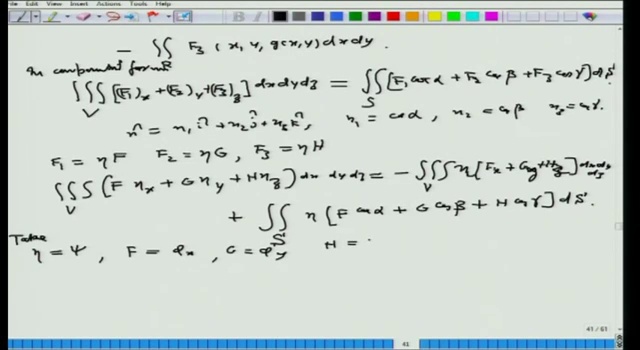 File Edit View Insert Actions Tools Help
− ∬_R F₃ (x, y, g(x,y)) dx dy.
In component form
∭_V [(F₁)ₓ + (F₂)_y + (F₃)_z] dx dy dz = ∬_S [F₁ cos α + F₂ cos β + F₃ cos γ] dS.
n̂ = n₁ î + n₂ ĵ + n₃ k̂, n₁ = cos α, n₂ = cos β n₃ = cos γ.
F₁ = ηF F₂ = ηG, F₃ = ηH
∭_V (F ηₓ + G η_y + H η_z) dx dy dz = − ∭_V η [Fₓ + G_y + H_z] dx dy dz
+ ∬_S η [F cos α + G cos β + H cos γ] dS.
Take
η = ψ, F = φₓ, G = φ_y H =
41 / 61
41